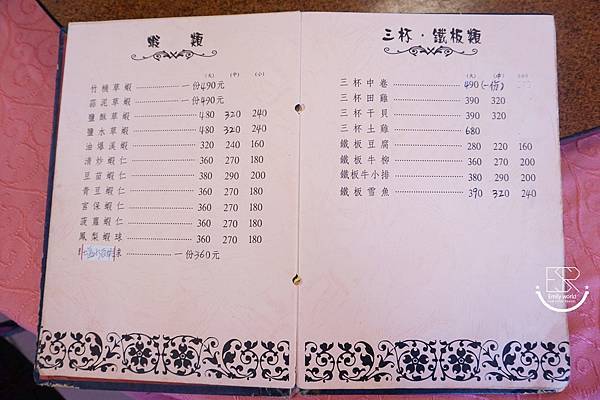 蝦類
(大) (中) (小)
竹桶草蝦 一份490元
蒜泥草蝦 一份490元
鹽酥草蝦 480 320 240
鹽水草蝦 480 320 240
油爆溪蝦 320 240 160
清炒蝦仁 360 270 180
豆苗蝦仁 380 290 200
青豆蝦仁 360 270 180
宮保蝦仁 360 270 180
菠蘿蝦仁 360 270 180
鳳梨蝦球 360 270 180
一份360元
三杯·鐵板類
(大) (中) (小)
三杯中卷 490(一份)
三杯田雞 390 320
三杯干貝 390 320
三杯土雞 680
鐵板豆腐 280 220 160
鐵板牛柳 360 270 200
鐵板牛小排 380 290 200
鐵板雪魚 390 320 240
Emily world